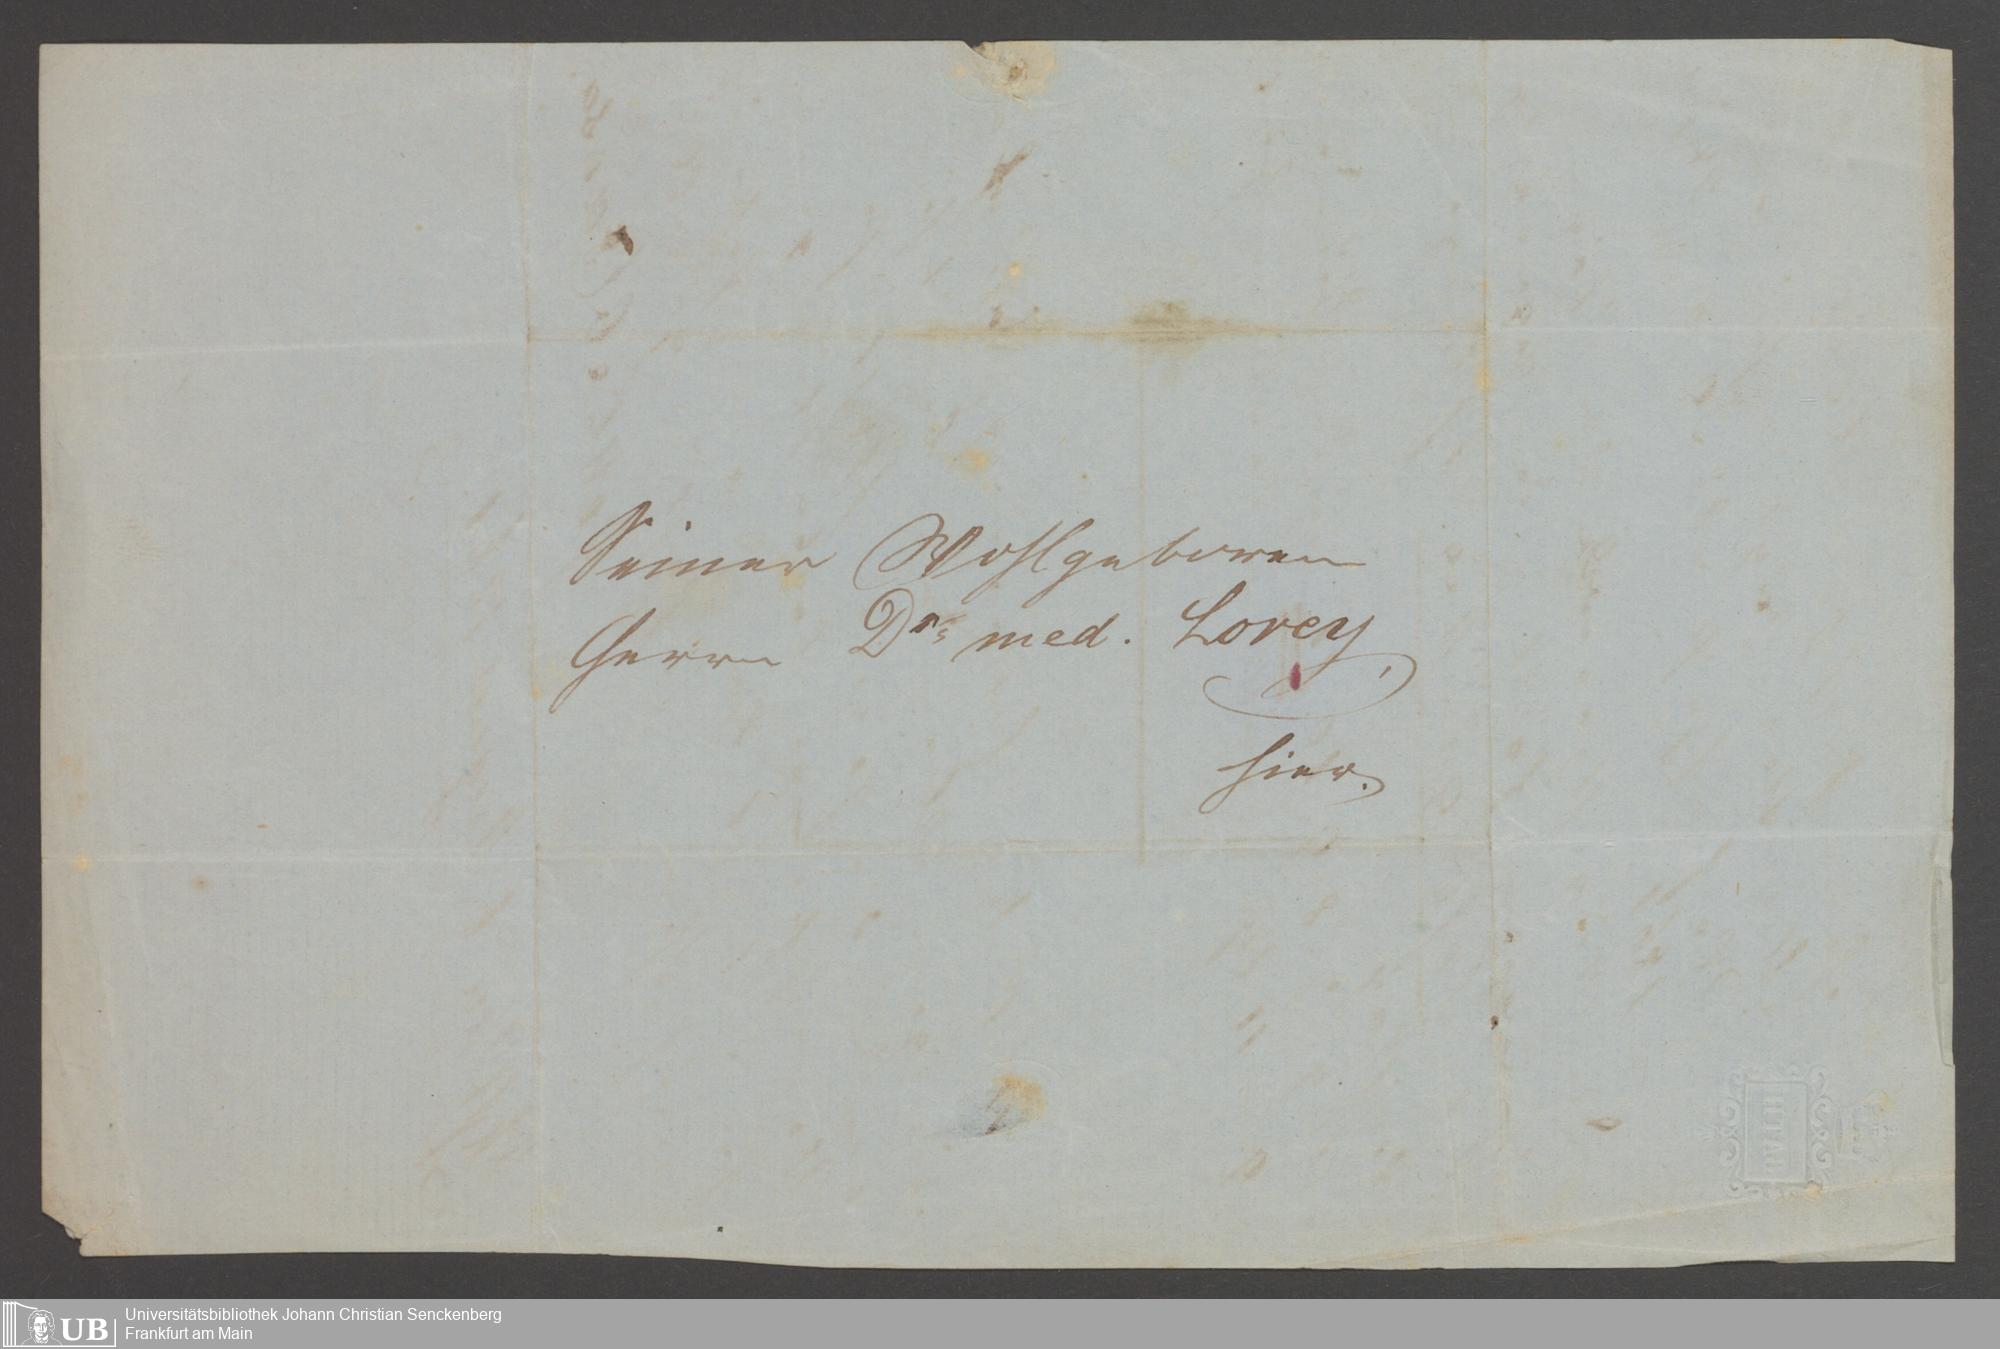 Seiner Wohlgeboren
Herrn Drs med. Lorey,
hier.
BATH
UB
Universitätsbibliothek Johann Christian Senckenberg
Frankfurt am Main